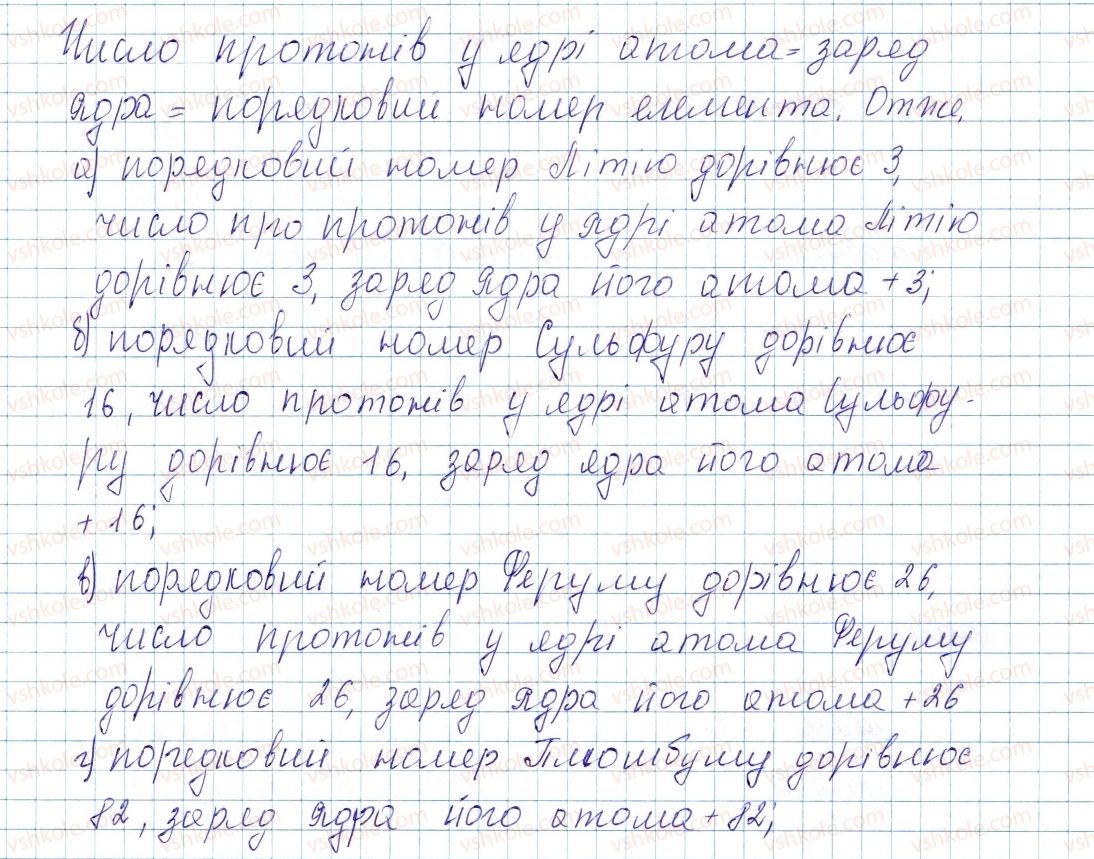 Число протонів у ядрі атома = заряд
ядра = порядковий номер елемента. Отже,
а) порядковий номер Літію дорівнює 3,
число про протонів у ядрі атома Літію
дорівнює 3, заряд ядра його атома +3;
б) порядковий номер Сульфуру дорівнює
16, число протонів у ядрі атома Сульфу-
ру дорівнює 16, заряд ядра його атома
+16;
в) порядковий номер Феруму дорівнює 26,
число протонів у ядрі атома Феруму
дорівнює 26, заряд ядра його атома +26
г) порядковий номер Плюмбуму дорівнює
82, заряд ядра його атома +82;